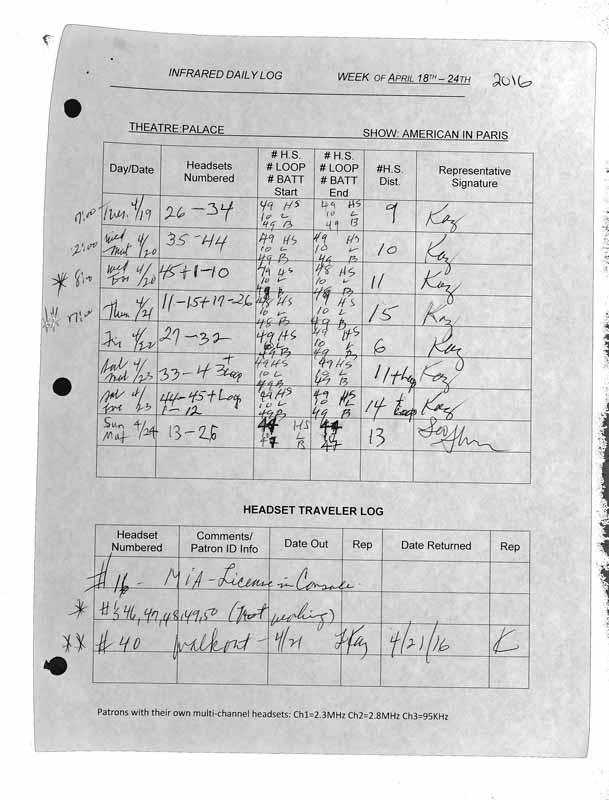 INFRARED DAILY LOG WEEK OF APRIL 18TH – 24TH 2016
THEATRE: PALACE SHOW: AMERICAN IN PARIS
Day/Date Headsets Numbered # H.S. # LOOP # BATT Start # H.S. # LOOP # BATT End #H.S. Dist. Representative Signature
7:00 Tues. 4/19 26-34 49 HS 10 L 49 B 49 HS 10 L 49 B 9 Kaz
2:00 Wed Mat 4/20 35-44 49 HS 10 L 49 B 49 HS 10 L 49 B 10 Kaz
* 8:00 Wed Eve 4/20 45+1-10 49 HS 10 L B 48 HS 10 L B 11 Kaz
7:00 Thu 4/21 11-15+17-26 48 HS 10 L 48 B 49 HS 10 L 49 B 15 Kaz
Fri 4/22 27-32 49 HS L 49 B 49 HS 10 L 49 B 6 Kaz
Sat Mat 4/23 33-43 + Loop 49 HS 10 L 49 B 49 HS 10 L 49 B 11 + Loop Kaz
Sat Eve 4/23 44-45 + Loop 1-12 49 HS 10 L 49 B 49 HS 10 L 49 B 14 + Loop Kaz
Sun Mat 4/24 13-26 HS L 47 B 47 13
HEADSET TRAVELER LOG
Headset Numbered Comments/ Patron ID Info Date Out Rep Date Returned Rep
#16 - MIA - License in Console
* #'s 46, 47, 48, 49, 50 (Not working)
** #40 walkout - 4/21 Kaz 4/21/16 K
Patrons with their own multi-channel headsets: Ch1=2.3MHz Ch2=2.8MHz Ch3=95KHz